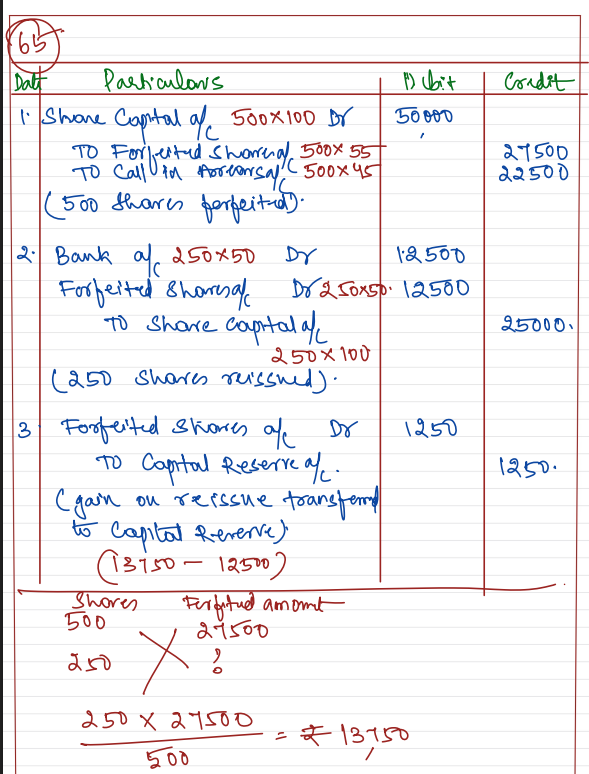 65
Date Particulars Debit Credit
1. Share Capital a/c 500×100 Dr 50000
TO Forfeited Shares a/c 500×55 27500
TO Call in Arrears a/c 500×45 22500
(500 Shares forfeited).
2. Bank a/c 250×50 Dr 12500
Forfeited Shares a/c Dr 250×50. 12500
TO Share Capital a/c 25000.
250×100
(250 Shares reissued).
3 Forfeited Shares a/c Dr 1250
TO Capital Reserve a/c. 1250.
(gain on reissue transferred
to Capital Reserve)
(13750 - 12500)
Shares Forfeited amount
500 27500
250 ?
250 × 27500
= ₹ 13750
500